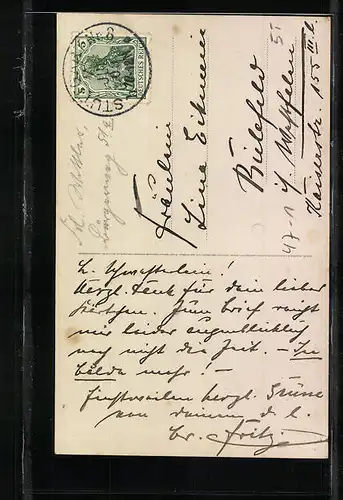 STUTTGART
5 DEUTSCHES REICH 5
Fräulein
Lina Eickmeier
Bielefeld
i. Westfalen
Kaiserstr. 155 III. l.
L. Schwesterlein!
Herzl. Dank für dein liebes
Kärtchen. Zum Brief reicht
mir leider augenblicklich
noch nicht die Zeit. – In
Bälde mehr! –
Einstweilen herzl. Grüsse
von deinem d. l.
Br. Fritz.